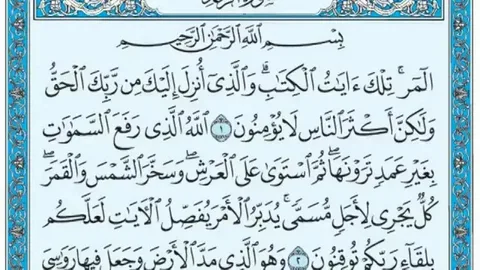 بِسْمِ اللَّهِ الرَّحْمَٰنِ الرَّحِيمِ
الٓمٓر ۚ تِلْكَ ءَايَاتُ الْكِتَابِ ۗ وَالَّذِي أُنزِلَ إِلَيْكَ مِن رَّبِّكَ الْحَقُّ
وَلَٰكِنَّ أَكْثَرَ النَّاسِ لَا يُؤْمِنُونَ ١ اللَّهُ الَّذِي رَفَعَ السَّمَاوَاتِ
بِغَيْرِ عَمَدٍ تَرَوْنَهَا ۖ ثُمَّ اسْتَوَىٰ عَلَى الْعَرْشِ ۖ وَسَخَّرَ الشَّمْسَ وَالْقَمَرَ ۖ
كُلٌّ يَجْرِي لِأَجَلٍ مُّسَمًّى ۚ يُدَبِّرُ الْأَمْرَ يُفَصِّلُ الْآيَاتِ لَعَلَّكُم
بِلِقَاءِ رَبِّكُمْ تُوقِنُونَ ٢ وَهُوَ الَّذِي مَدَّ الْأَرْضَ وَجَعَلَ فِيهَا رَوَاسِيَ